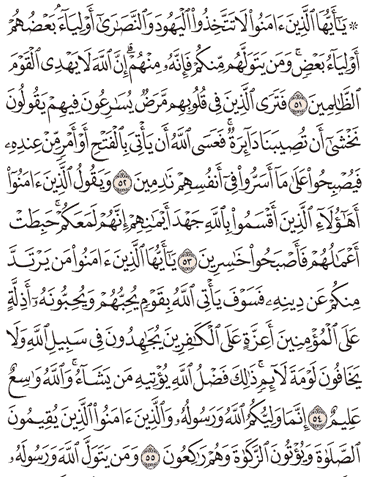 ۞ يَٰٓأَيُّهَا ٱلَّذِينَ ءَامَنُوا۟ لَا تَتَّخِذُوا۟ ٱلْيَهُودَ وَٱلنَّصَٰرَىٰٓ أَوْلِيَآءَۘ بَعْضُهُمْ
أَوْلِيَآءُ بَعْضٍۚ وَمَن يَتَوَلَّهُم مِّنكُمْ فَإِنَّهُۥ مِنْهُمْۗ إِنَّ ٱللَّهَ لَا يَهْدِى ٱلْقَوْمَ
ٱلظَّٰلِمِينَ ٥١ فَتَرَى ٱلَّذِينَ فِى قُلُوبِهِم مَّرَضٌ يُسَٰرِعُونَ فِيهِمْ يَقُولُونَ
نَخْشَىٰٓ أَن تُصِيبَنَا دَآئِرَةٌۚ فَعَسَى ٱللَّهُ أَن يَأْتِىَ بِٱلْفَتْحِ أَوْ أَمْرٍ مِّنْ عِندِهِۦ
فَيُصْبِحُوا۟ عَلَىٰ مَآ أَسَرُّوا۟ فِىٓ أَنفُسِهِمْ نَٰدِمِينَ ٥٢ وَيَقُولُ ٱلَّذِينَ ءَامَنُوٓا۟
أَهَٰٓؤُلَآءِ ٱلَّذِينَ أَقْسَمُوا۟ بِٱللَّهِ جَهْدَ أَيْمَٰنِهِمْۙ إِنَّهُمْ لَمَعَكُمْۚ حَبِطَتْ
أَعْمَٰلُهُمْ فَأَصْبَحُوا۟ خَٰسِرِينَ ٥٣ يَٰٓأَيُّهَا ٱلَّذِينَ ءَامَنُوا۟ مَن يَرْتَدَّ
مِنكُمْ عَن دِينِهِۦ فَسَوْفَ يَأْتِى ٱللَّهُ بِقَوْمٍ يُحِبُّهُمْ وَيُحِبُّونَهُۥٓ أَذِلَّةٍ
عَلَى ٱلْمُؤْمِنِينَ أَعِزَّةٍ عَلَى ٱلْكَٰفِرِينَ يُجَٰهِدُونَ فِى سَبِيلِ ٱللَّهِ وَلَا
يَخَافُونَ لَوْمَةَ لَآئِمٍۚ ذَٰلِكَ فَضْلُ ٱللَّهِ يُؤْتِيهِ مَن يَشَآءُۚ وَٱللَّهُ وَٰسِعٌ
عَلِيمٌ ٥٤ إِنَّمَا وَلِيُّكُمُ ٱللَّهُ وَرَسُولُهُۥ وَٱلَّذِينَ ءَامَنُوا۟ ٱلَّذِينَ يُقِيمُونَ
ٱلصَّلَوٰةَ وَيُؤْتُونَ ٱلزَّكَوٰةَ وَهُمْ رَٰكِعُونَ ٥٥ وَمَن يَتَوَلَّ ٱللَّهَ وَرَسُولَهُۥ